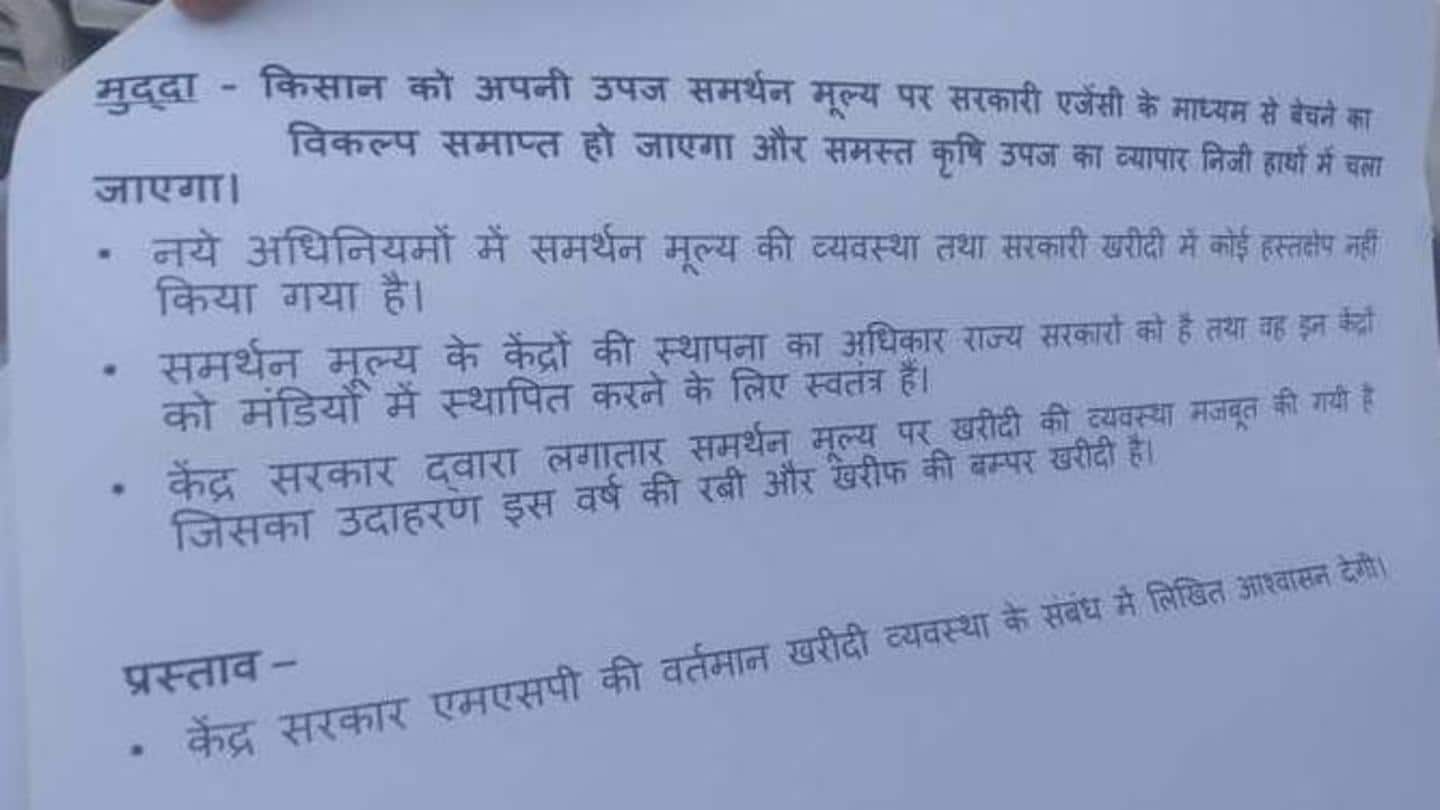 मुद्दा - किसान को अपनी उपज समर्थन मूल्य पर सरकारी एजेंसी के माध्यम से बेचने का
विकल्प समाप्त हो जाएगा और समस्त कृषि उपज का व्यापार निजी हाथों में चला
जाएगा।
• नये अधिनियमों में समर्थन मूल्य की व्यवस्था तथा सरकारी खरीदी में कोई हस्तक्षेप नहीं
किया गया है।
• समर्थन मूल्य के केंद्रों की स्थापना का अधिकार राज्य सरकारों को है तथा वह इन केंद्रों
को मंडियों में स्थापित करने के लिए स्वतंत्र हैं।
• केंद्र सरकार द्वारा लगातार समर्थन मूल्य पर खरीदी की व्यवस्था मजबूत की गयी है
जिसका उदाहरण इस वर्ष की रबी और खरीफ की बम्पर खरीदी है।
प्रस्ताव –
• केंद्र सरकार एमएसपी की वर्तमान खरीदी व्यवस्था के संबंध में लिखित आश्वासन देगी।